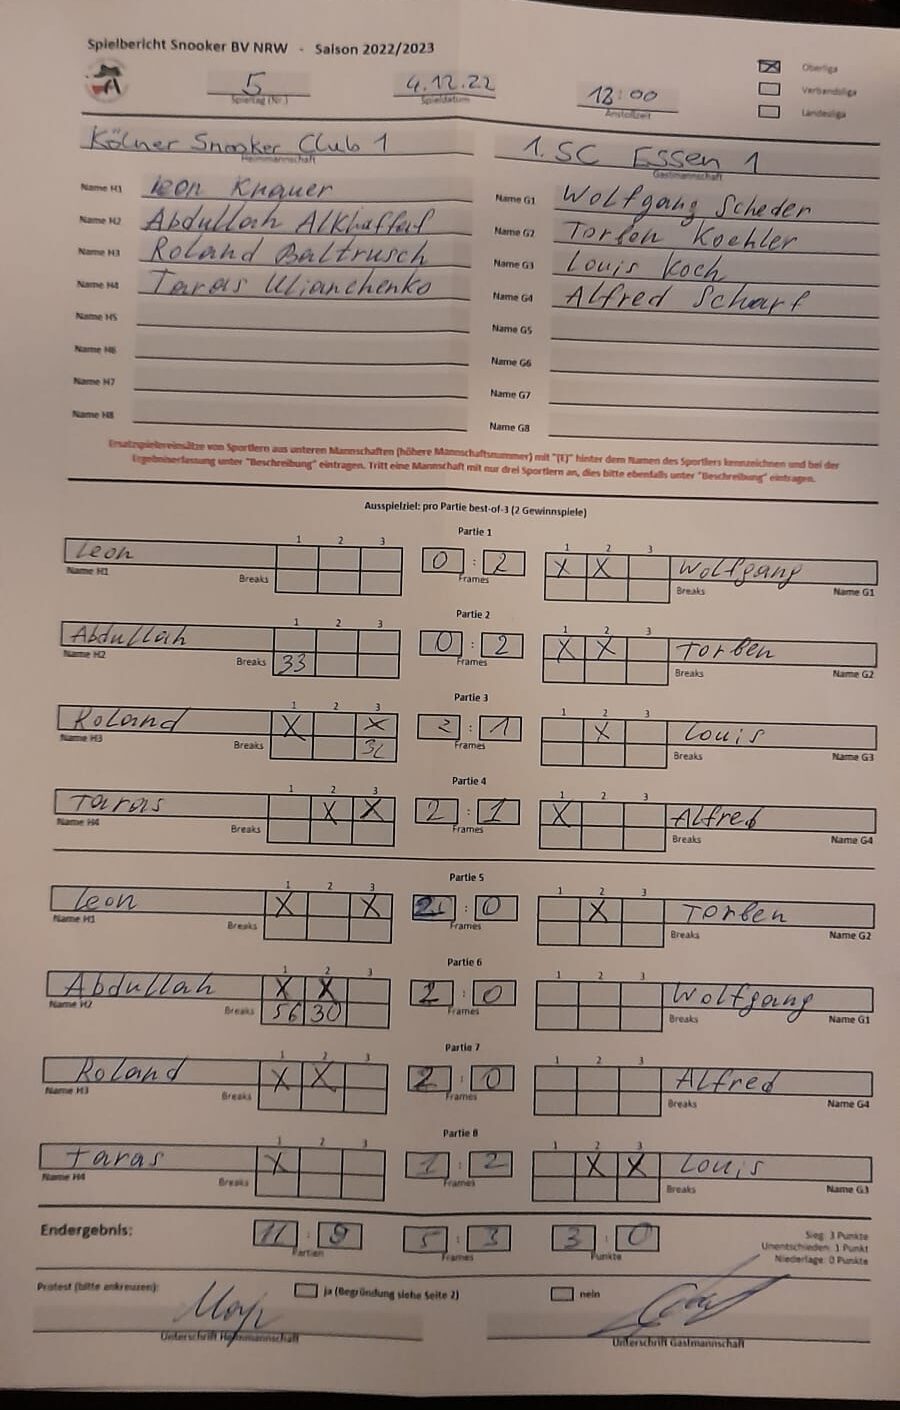 Spielbericht Snooker BV NRW - Saison 2022/2023
5 4.12.22 12:00
Spieltag (Nr.) Spieldatum Anstoßzeit
Oberliga
Verbandsliga
Landesliga
Kölner Snooker Club 1 1. SC Essen 1
Heimmannschaft Gastmannschaft
Name H1 Leon Knauer Name G1 Wolfgang Scheder
Name H2 Abdullah Alkhaffaf Name G2 Torben Koehler
Name H3 Roland Baltrusch Name G3 Louis Koch
Name H4 Taras Ulianchenko Name G4 Alfred Scharf
Name H5 Name G5
Name H6 Name G6
Name H7 Name G7
Name H8 Name G8
Ersatzspielereinsätze von Sportlern aus unteren Mannschaften (höhere Mannschaftsnummer) mit "(E)" hinter dem Namen des Sportlers kennzeichnen und bei der
Ergebniserfassung unter "Beschreibung" eintragen. Tritt eine Mannschaft mit nur drei Sportlern an, dies bitte ebenfalls unter "Beschreibung" eintragen.
Ausspielziel: pro Partie best-of-3 (2 Gewinnspiele)
Partie 1
1 2 3 1 2 3
Leon 0 : 2 X X Wolfgang
Name H1 Breaks Frames Breaks Name G1
Partie 2
1 2 3 1 2 3
Abdullah 0 : 2 X X Torben
Name H2 Breaks 33 Frames Breaks Name G2
Partie 3
1 2 3 1 2 3
Roland X X 2 : 1 X Louis
Name H3 Breaks Frames Breaks Name G3
Partie 4
1 2 3 1 2 3
Taras X X 2 : 1 X Alfred
Name H4 Breaks Frames Breaks Name G4
Partie 5
1 2 3 1 2 3
Leon X X : 0 X Torben
Name H1 Breaks Frames Breaks Name G2
Partie 6
1 2 3 1 2 3
Abdullah X X 2 : 0 Wolfgang
Name H2 Breaks 56 30 Frames Breaks Name G1
Partie 7
1 2 3 1 2 3
Roland X X 2 : 0 Alfred
Name H3 Breaks Frames Breaks Name G4
Partie 8
1 2 3 1 2 3
Taras X 1 : 2 X X Louis
Name H4 Breaks Frames Breaks Name G3
Endergebnis: 11 : 9 5 : 3 3 : 0
Partien Frames Punkte
Sieg: 3 Punkte
Unentschieden: 1 Punkt
Niederlage: 0 Punkte
Protest (bitte ankreuzen): ja (Begründung siehe Seite 2) nein
Unterschrift Heimmannschaft Unterschrift Gastmannschaft